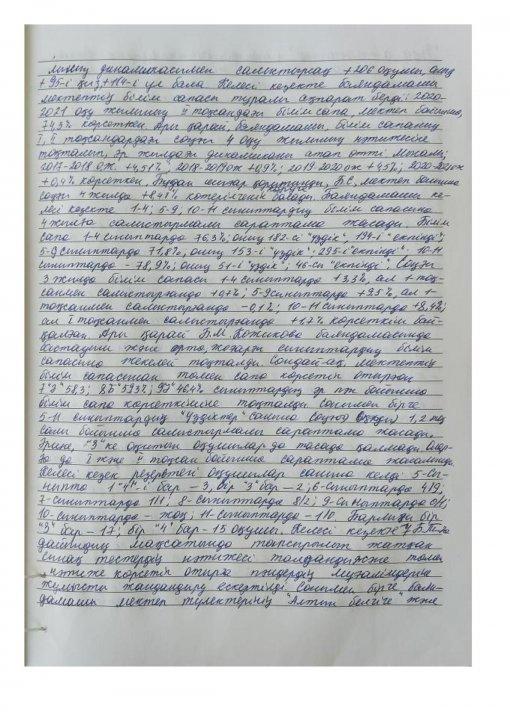 мының динамикасымен салыстырғанд +206 оқушы, оның
+95-і қыз, +114-і ұл бала. Келесі кезекте баяндамашы
мектептің білім сапасы туралы ақпарат берді: 2020-
2021 оқу жылының II тоқсандағы білім сапа мектеп бойынша
74,5% көрсеткен. Ары қарай, баяндамашы, білім сапаның
I, II тоқсандардағы соңғы 4 оқу жылының нәтижесіне
тоқталып, әр жылдағы динамиканы атап өтті. Мысалы:
2017-2018 о.ж. +4,51%; 2018-2019 о.ж +0,9%; 2019-2020 о.ж +4,5%; 2020-2021 о.ж
+0,4% көрсеткен. Бұдан шығар қорытынды, Б.С. мектеп бойынша
соңғы 4 жылда +8,41% көтерілгенін байқады. Баяндамашы ке-
лесі кезекте 1-4; 5-9; 10-11 сыныптардың білім сапасына
4 жылға салыстырмалы сараптама жасады. Білім
сапа 1-4 сыныптарда 76,3%; оның 182-сі "үздік", 194-і "екпінді";
5-9 сыныптарда 71,8%, оның 153-і "үздік", 295-і "екпінді". 10-11
сыныптарда - 78,9%; оның 51-і "үздік", 46-сы "екпінді". Соңғы
3 жылда білім сапасы 1-4 сыныптарда +3,5%, ал 1-тоқ-
санмен салыстырғанда +0,7%; 5-9 сыныптарда +3,5% ал 1-
тоқсанмен салыстырғанда -0,1%; 10-11 сыныптарда +8,4%;
ал I тоқсанмен салыстырғанда +1,2% көрсеткіш бай-
қалған. Ары қарай Б.М. Кожикова баяндамасында
бастауыш және орта, жоғары сыныптардың білім
сапасына жекелей тоқталды. Сондай-ақ, мектептің
білім сапасынан төмен сапа көрсетіп отырған
7"З" 58,3; 8"Б" 57,7%; 9"Б" 46,4% сыныптардың әр пән бойынша
білім сапа көрсеткішіне тоқталды. Сонымен бірге
5-11 сыныптардың "үздіктер" санына соңғы 1, 2 тоқ-
саны бойынша салыстырмалы сараптама жасады.
Әрине, "3"-ке оқитын оқушылар да тасада қалмады. Олар-
ға да I және II тоқсан бойынша сараптама жасалынды.
Келесі кезек резервтегі оқушылар санына келді. 5-сы-
ныпта 1 "4"-і бар - 3, бір "3" бар - 2; 6-сыныптарда 4/9;
7-сыныптарда 1/1; 8-сыныптарда 8/2; 9-сыныптарда 0/1;
10-сыныптарда - жоқ; 11-сыныптарда - 1/0. Барлығы бір
"3" бар - 17; бір "4" бар - 15 оқушы. Келесі кезекте ҰБТ-ға
дайындық мақсатында тапсырылып жатқан
сынақ тестердің нәтижесі талданды және төмен
нәтиже көрсетіп отырған пәндердің мұғалімдеріне
жұмысты жандандыру ескертілді. Сонымен бірге баян-
дамашы мектеп түлектерінің "Алтын белгіге" және